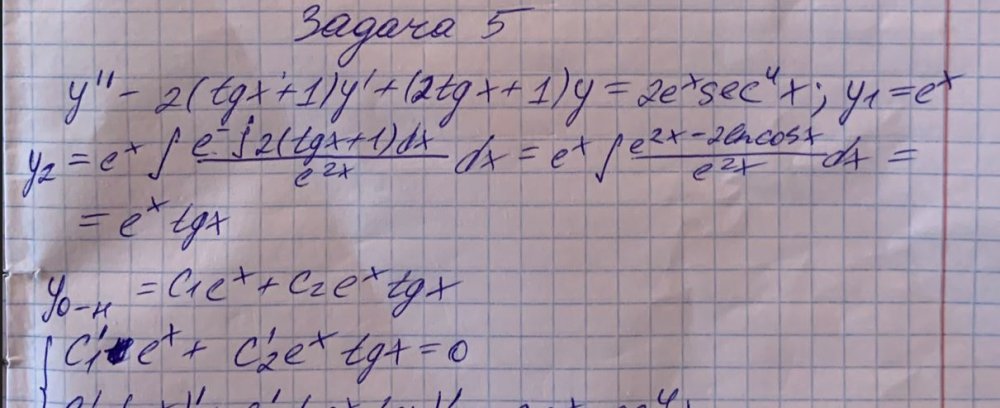 Задача 5
y'' - 2(tgx+1)y' + (2tgx+1)y = 2eˣsec⁴x; y₁ = eˣ
y₂ = eˣ ∫ e^(-∫2(tgx+1)dx) / e^(2x) dx = eˣ ∫ e^(2x-2lncosx) / e^(2x) dx =
= eˣ tgx
y₀₋н = C₁eˣ + C₂eˣtgx
{ C₁'eˣ + C₂'eˣ tgx = 0